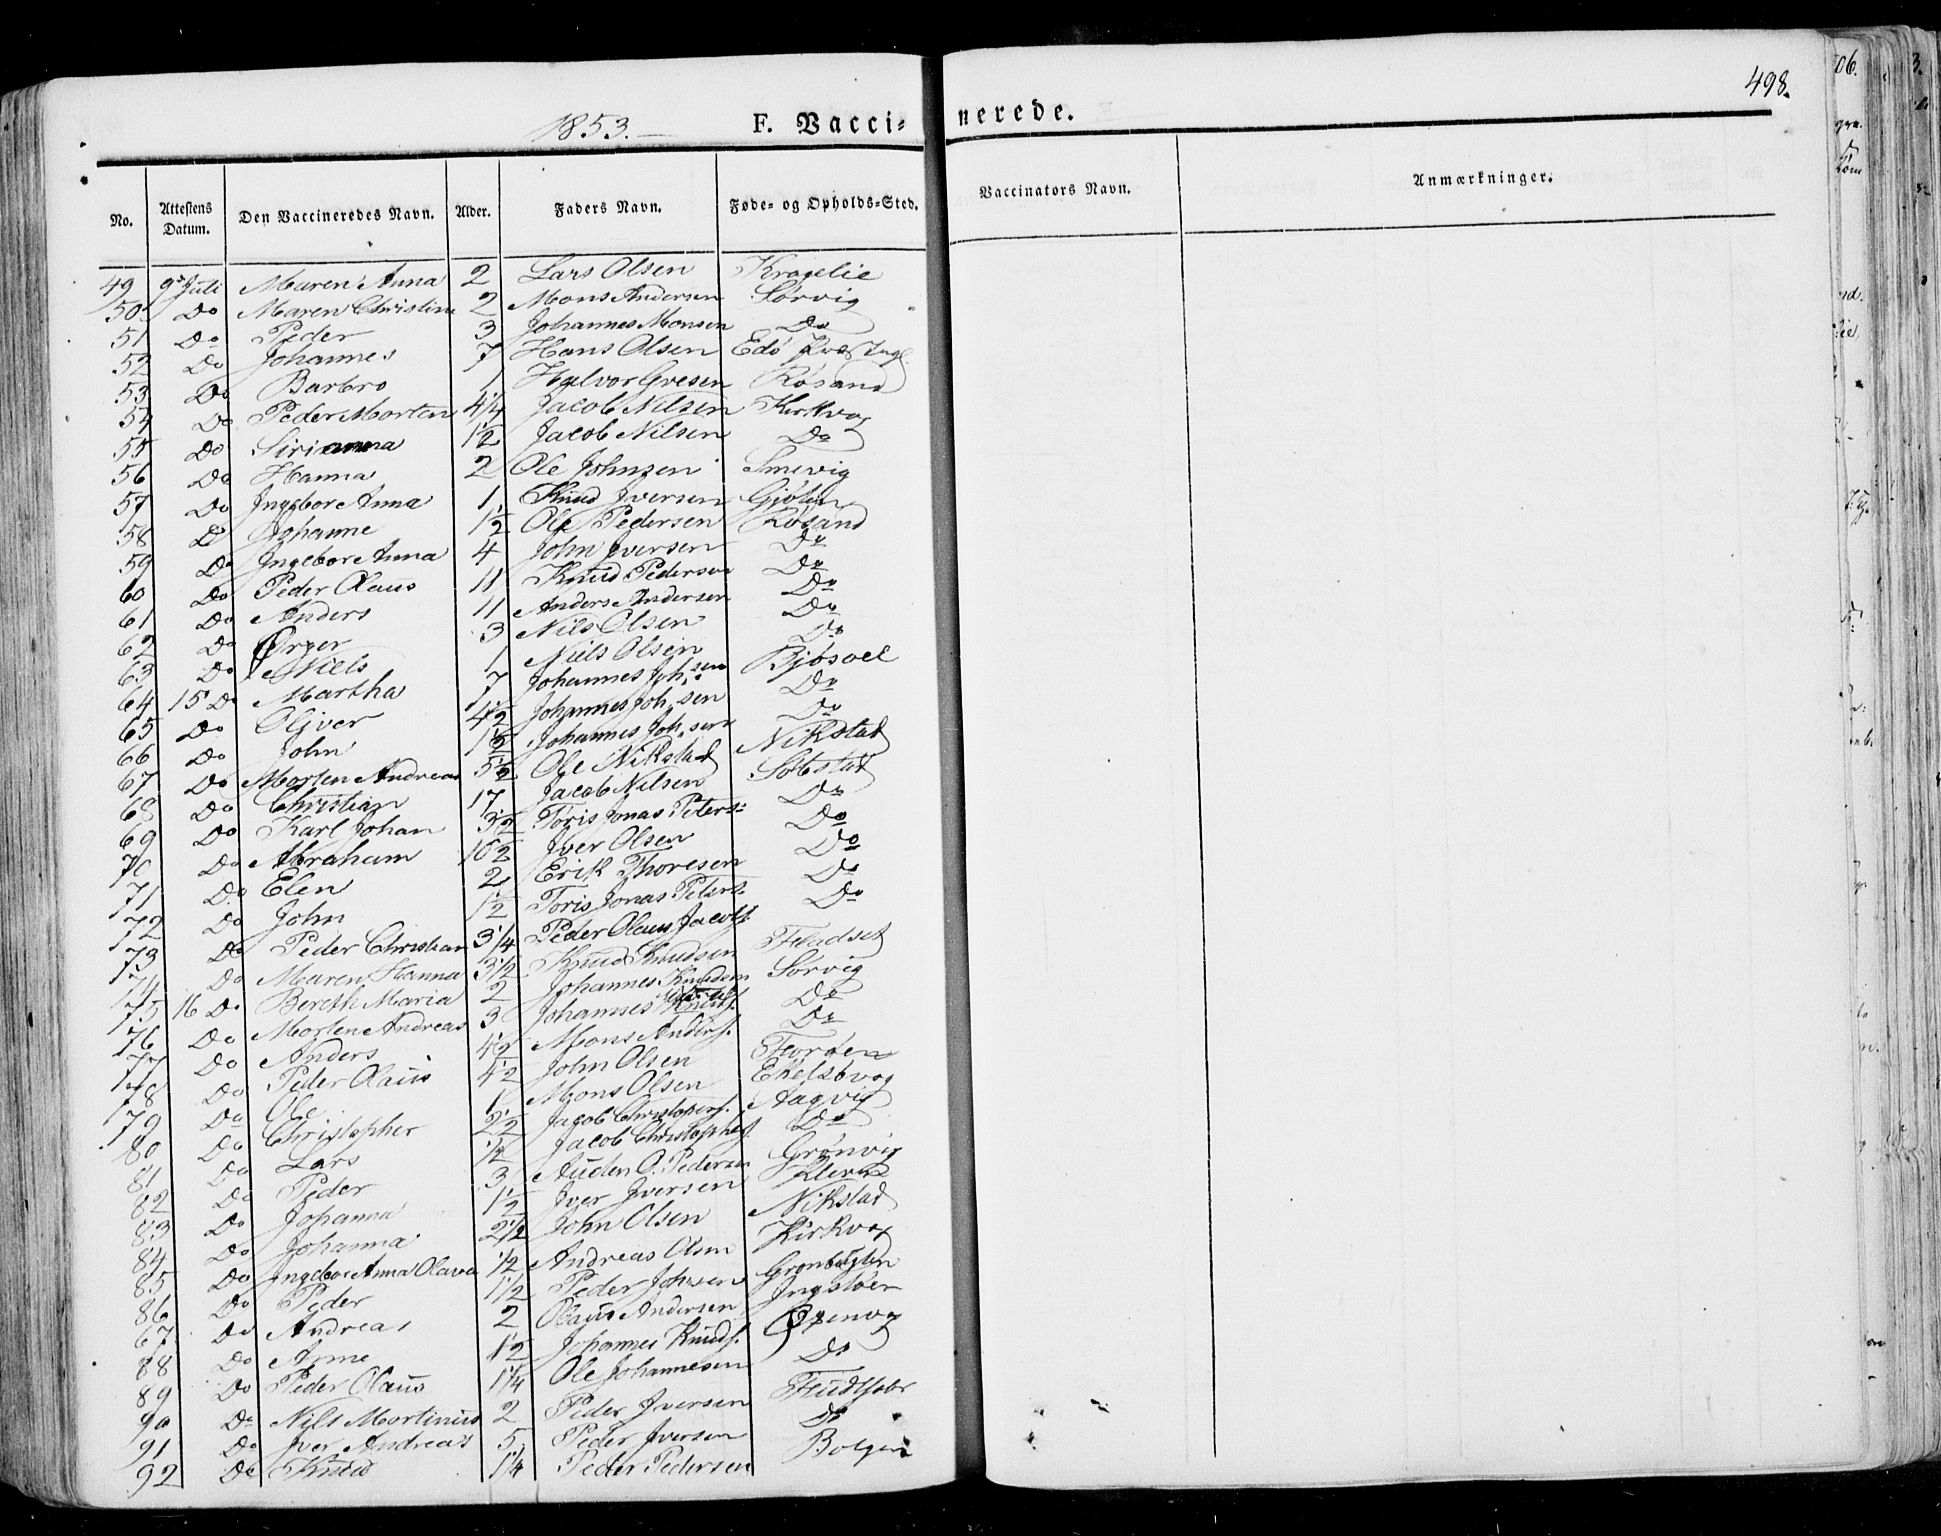 1853.
F. Vacci-
nerede.
498.
No. | Attestens Datum. | Den Vaccineredes Navn. | Alder. | Faders Navn. | Føde- og Opholds-Sted. | Vaccinators Navn. | Anmærkninger.
49 9de Juli Maren Anna 2 Lars Olsen Kragelie
50 Do Maren Christine 2 Mons Andersen Sørvig
51 Do Peder 3 Johannes Monsen Do
52 Do Johannes 7 Hans Olsen Edø
53 Do Barbro 1 Halvor Gresen Røsand
54 Do Peder Morten 4 1/4 Jacob Nilsen Kirkvog
55 Do Sirianna 1 1/2 Jacob Nilsen Do
56 Do Hanna 2 Ole Johnsen Smevig
57 Do Ingebor Anna 1 Knud Iversen Gjøten
58 Do Johanne 1 1/2 Ole Pedersen Røsand
59 Do Ingebor Anna 4 John Iversen Do
60 Do Peder Olaus 11 Knud Pedersen Do
61 Do Anders 11 Anders Andersen Do
62 Do Ørger 3 Nils Olsen Do
63 Do Niels 1 Niels Olsen Do
64 15 Do Martha 7 Johannes Joh:sen Bjøsvel
65 Do Oliver 4 1/2 Johannes Joh:sen Do
66 Do John 1 1/2 Johannes Joh:sen Do
67 Do Morten Andreas 5 1/2 Ole Nikstad Nikstad
68 Do Christian 17 Jacob Nilsen Solstad
69 Do Karl Johan 3 1/2 Toris Jonas Peters: Do
70 Do Abraham 10 1/2 Iver Olsen Do
71 Do Elen 2 Erik Thoresen Do
72 Do John 1 1/2 Toris Jonas Peters: Do
73 Do Peder Christian 3 1/4 Peder Olaus Jacobs. Do
74 Do Maren Hanna 3 1/2 Knud Knudsen Fladset
75 16 Do Bereth Maria 2 Johannes Knudsen Sørvig
76 Do Morten Andreas 3 Johannes Knuds. Do
77 Do Anders 4 1/2 Mons Anders. Do
78 Do Peder Olaus 4 1/2 John Olsen
79 Do Ole 1 Mons Olsen Ekelsbvog
80 Do Christopher 2 1/2 Jacob Christophers. Aagvig
81 Do Lars 1/2 Jacob Christophers. Do
82 Do Peder 3 Auden O. Pedersen Grønvig
83 Do Johanna 1 1/2 Iver Iversen
84 Do Johanna 2 1/2 John Olsen Nikstad
85 Do Ingebor Anna Olava 1/2 Andreas Olsen Kirkvog
86 Do Peder 1 1/2 Peder Johnsen
67 Do Andreas 2 Olaus Andersen
88 Do Anne 1 1/2 Johannes Knuds.
89 Do Peder Olaus 1 1/4 Ole Johannesen Do
90 Do Nils Mortinus 2 Peder Iversen
91 Do Iver Andreas 5 Peder Iversen Do
92 Do Knud 1 1/4 Peder Pedersen Bolgen